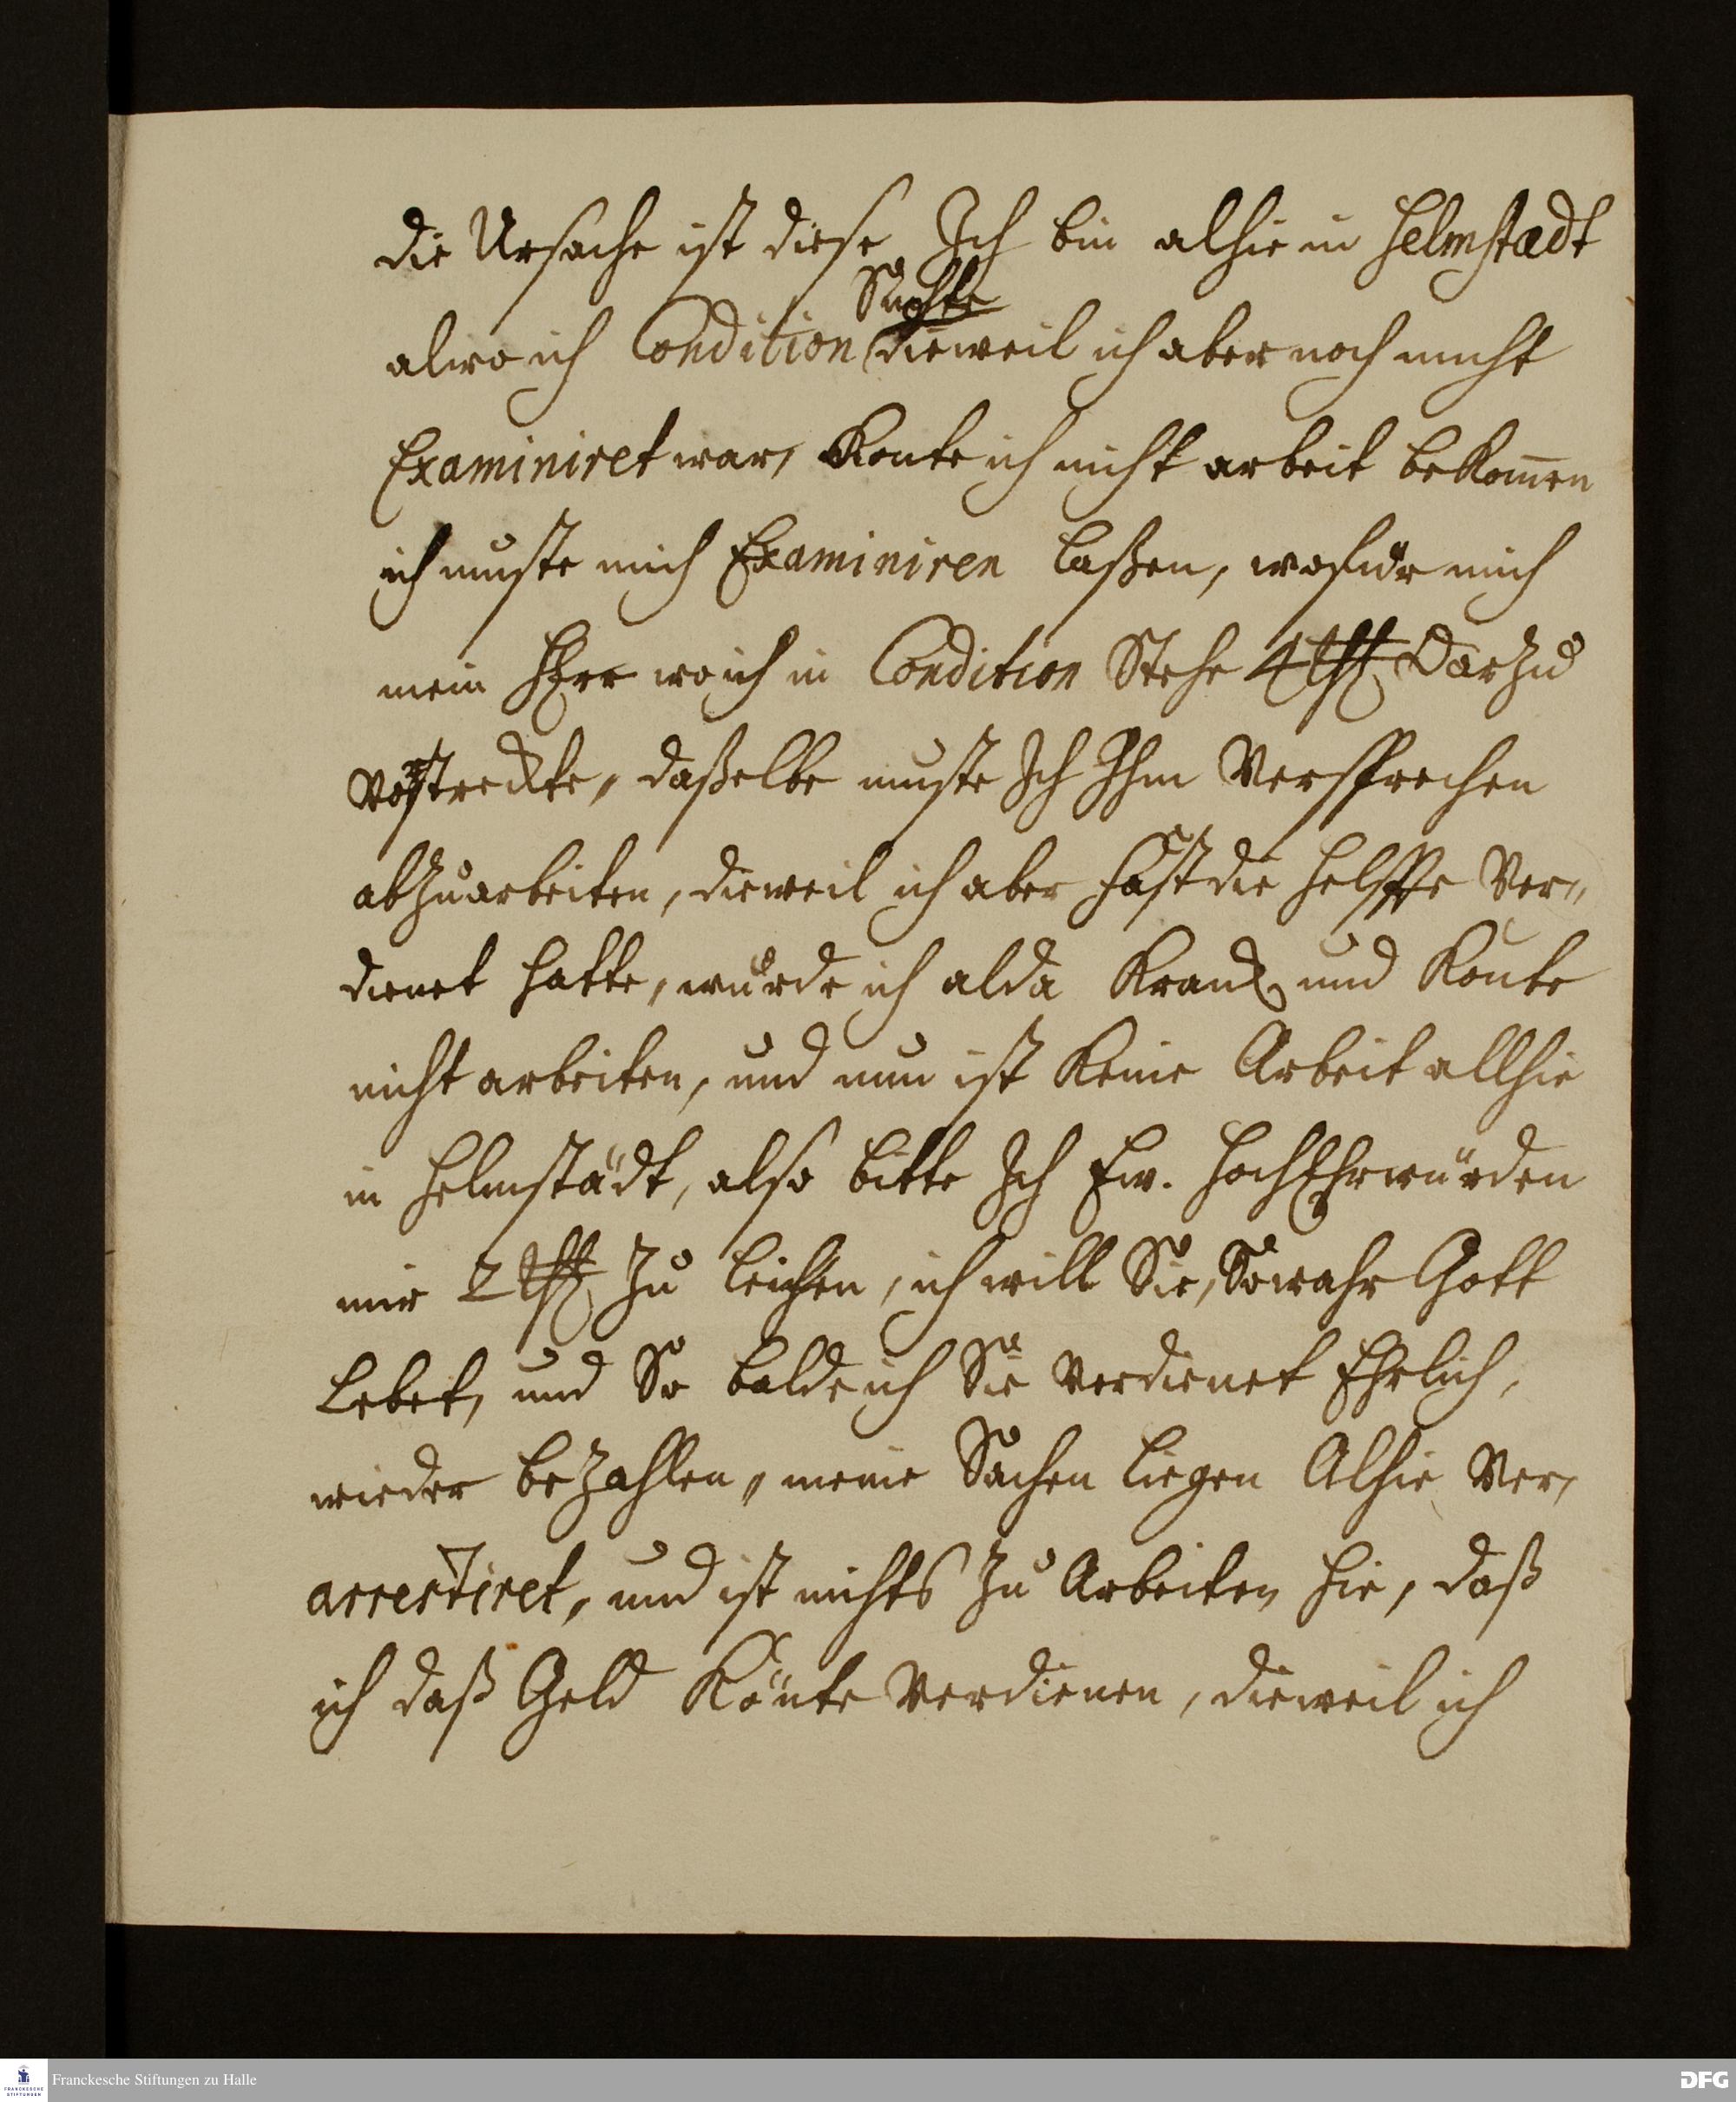 die Ursache ist diese Ich bin alhie in Helmstadt
Suchte
alwo ich Condition dieweil ich aber noch nicht
Examiniret war, Konte ich nicht arbeit beKom̄en
ich muste mich Examiniren laßen, wofür mich
mein HErr wo ich in Condition Stehe 4 thl. Darzu
vorstreckte, daßelbe muste Ich Ihm Versprechen
abZuarbeiten, dieweil ich aber fast die helffte Ver„
dienet hatte, wurde ich alda Kranck und Konte
nicht arbeiten, und nun ist Keine Arbeit allhie
in Helmstädt, also bitte Ich Ew. HochEhrwürden
mir 2 thl. Zu leichen, ich will Sie, Sowahr Gott
Lebet, und So balde ich Sie Verdienet Ehrlich,
wieder beZahlen, meine Sachen liegen Alhie Ver,
arrestiret, und ist nichts Zu Arbeiten hie, daß
ich daß Geld Könte Verdienen, dieweil ich
Franckesche Stiftungen zu Halle
DFG
FRANCKESCHE
STIFTUNGEN